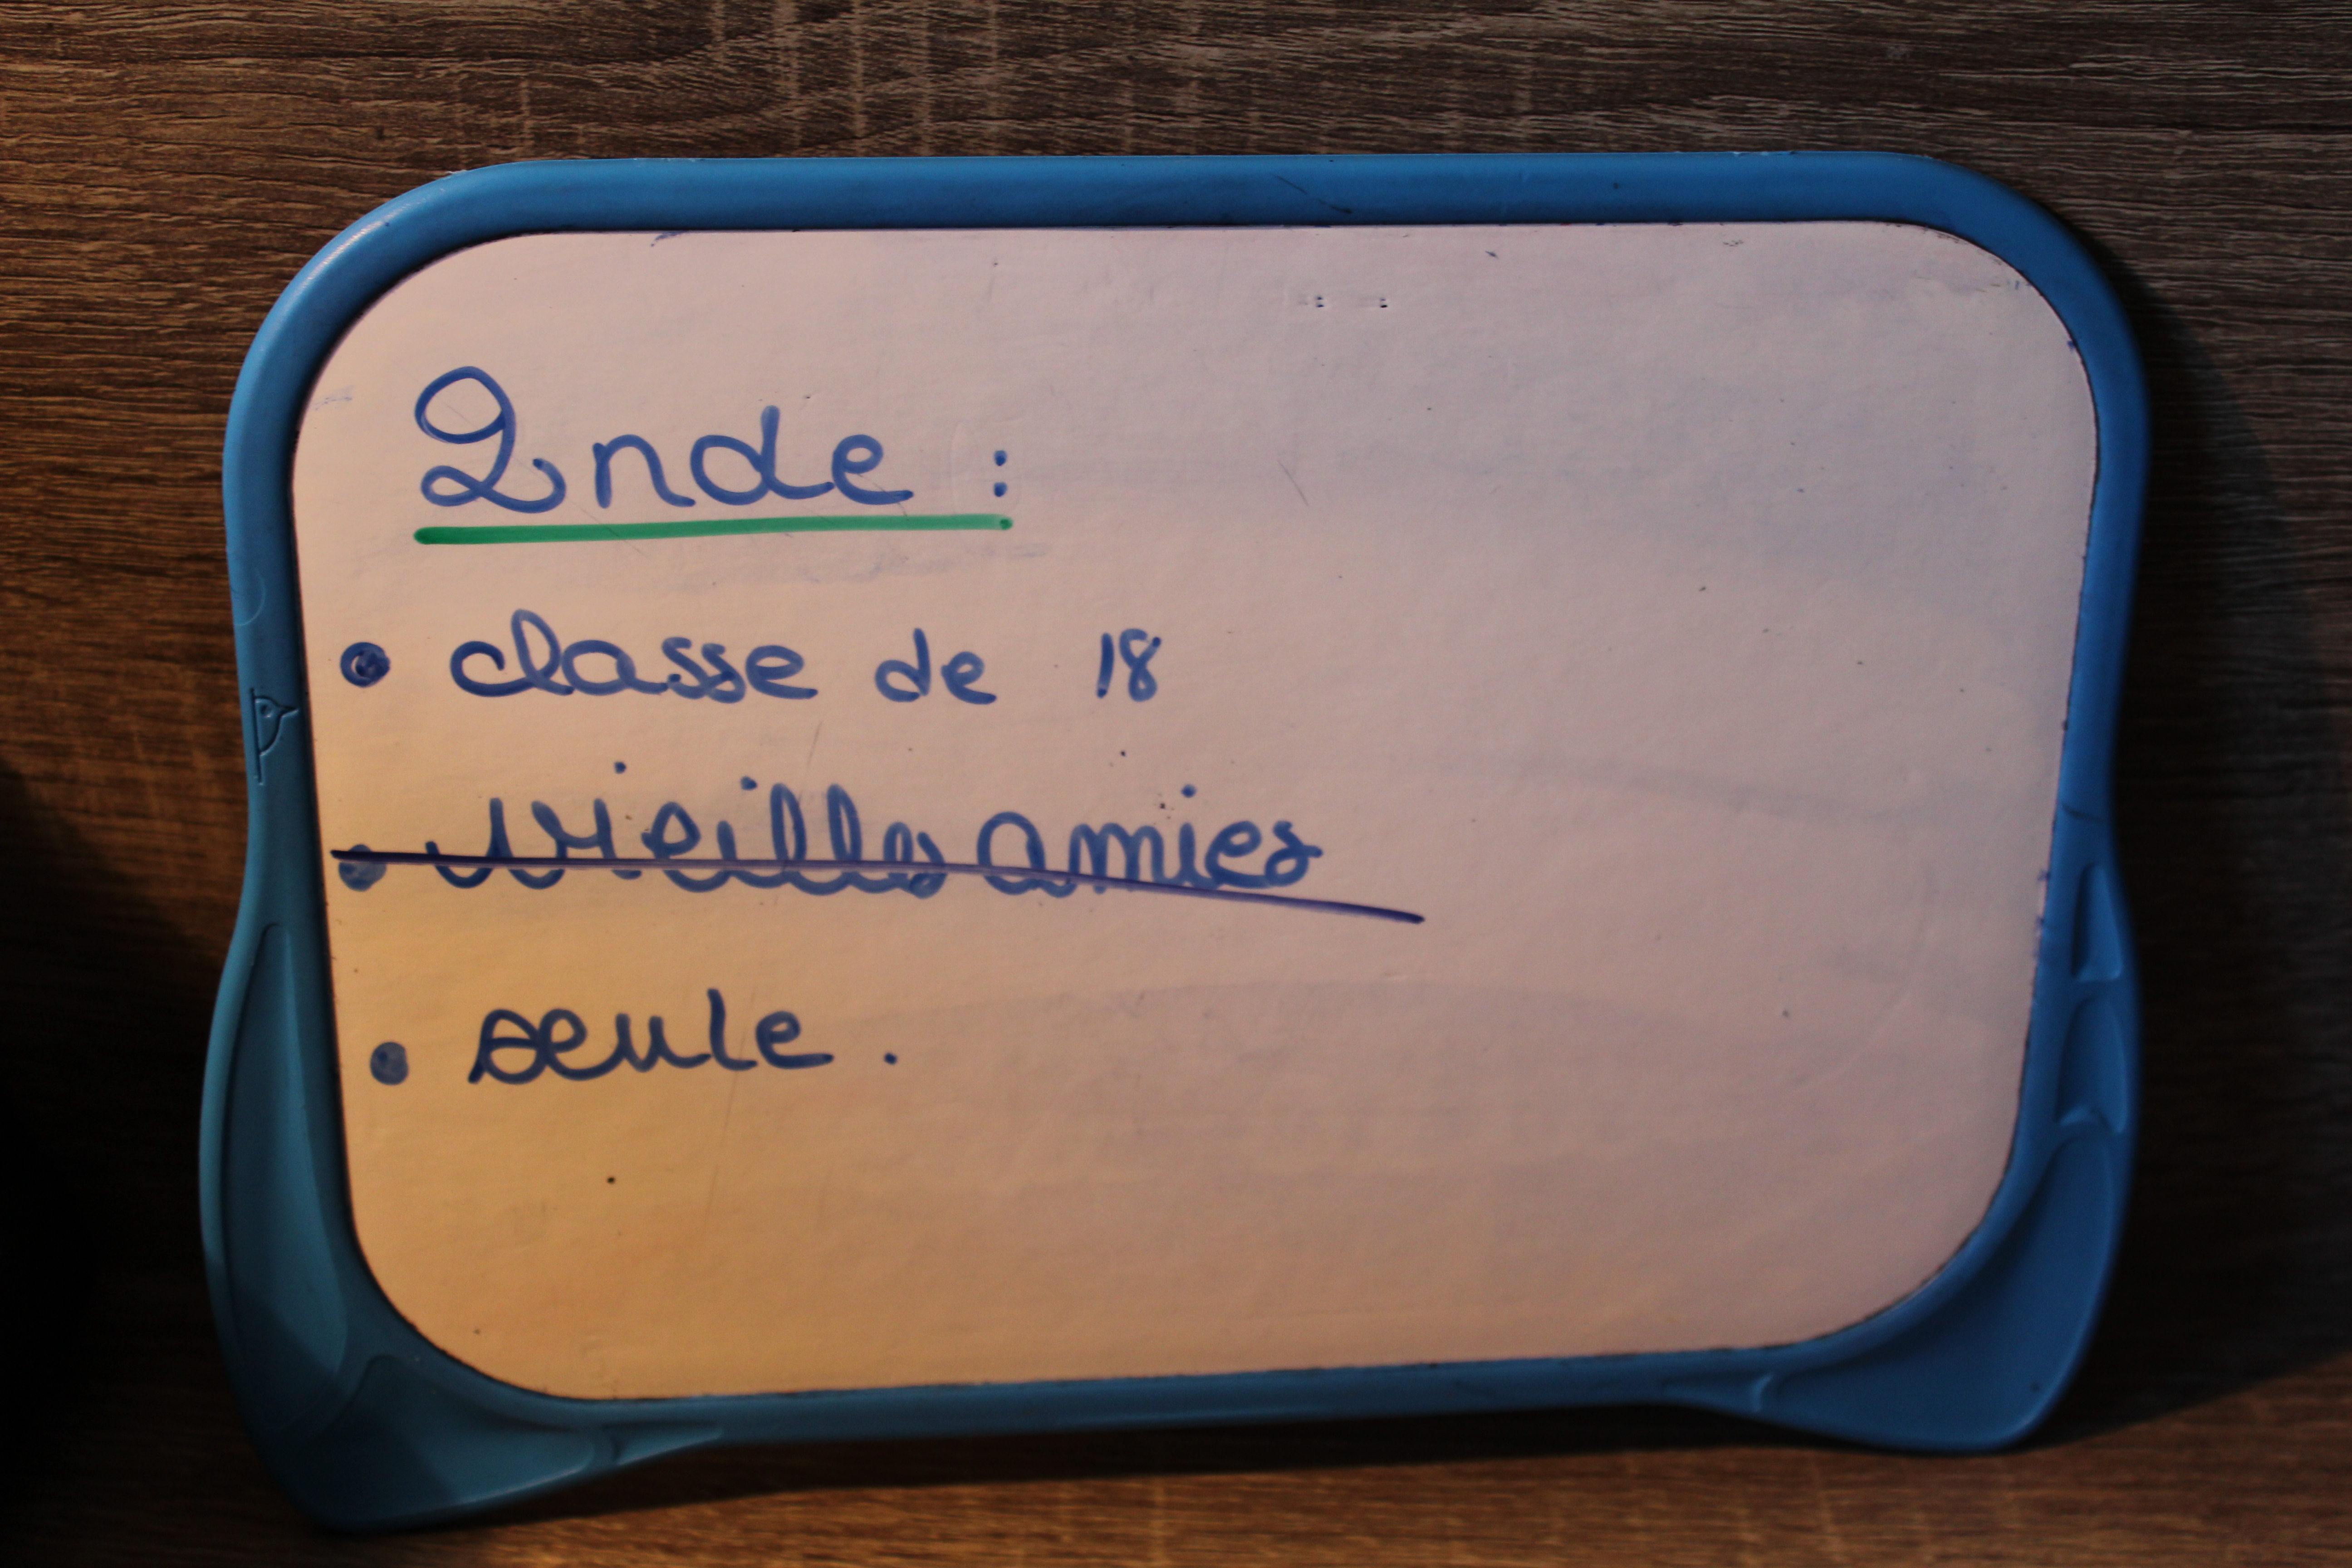 2nde :
• classe de 18
• vieilles amies
• seule .